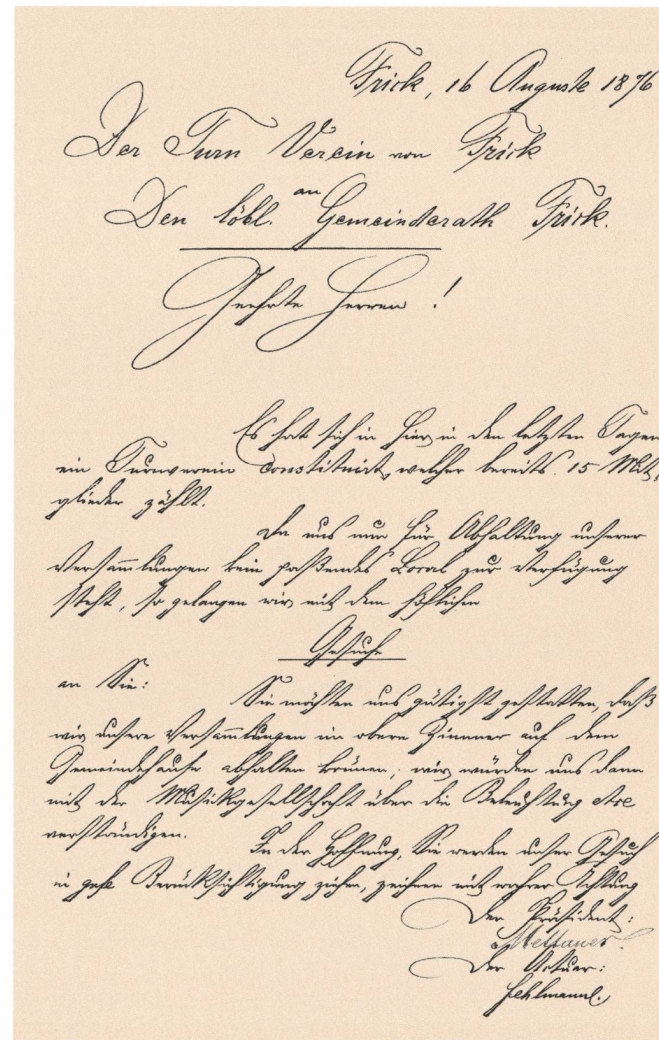 Frick, 16 Auguste 1876
Der Turn Verein von Frick
an
Den löbl. Gemeinderath Frick.
Geehrte Herren!
Es hat sich in hier in den letzten Tagen
ein Turnverein constituirt, welcher bereits 15 Mit-
glieder zählt.
Da uns nun für Abhaltung unserer
Versam̅lungen kein paßendes Local zur Verfügung
steht, so gelangen wir mit dem höflichen
Gesuche
an Sie:
Sie möchten uns gütigst gestatten, daß
wir unsere Versam̅lungen im obern Zimmer auf dem
Gemeindehause abhalten können; wir würden uns dann
mit der Musikgesellschaft über die Beleuchtung etc
verständigen.
In der Hoffnung, Sie werden unser Gesuch
in gefl. Berücksichtigung ziehen, zeichnen mit wahrer Achtung
Der Präsident:
Mettauer.
Der Actuar:
Fehlmann.